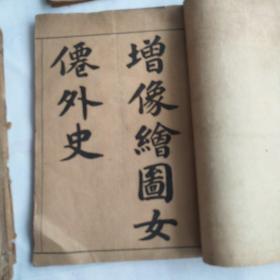 增像繪圖女
僊外史